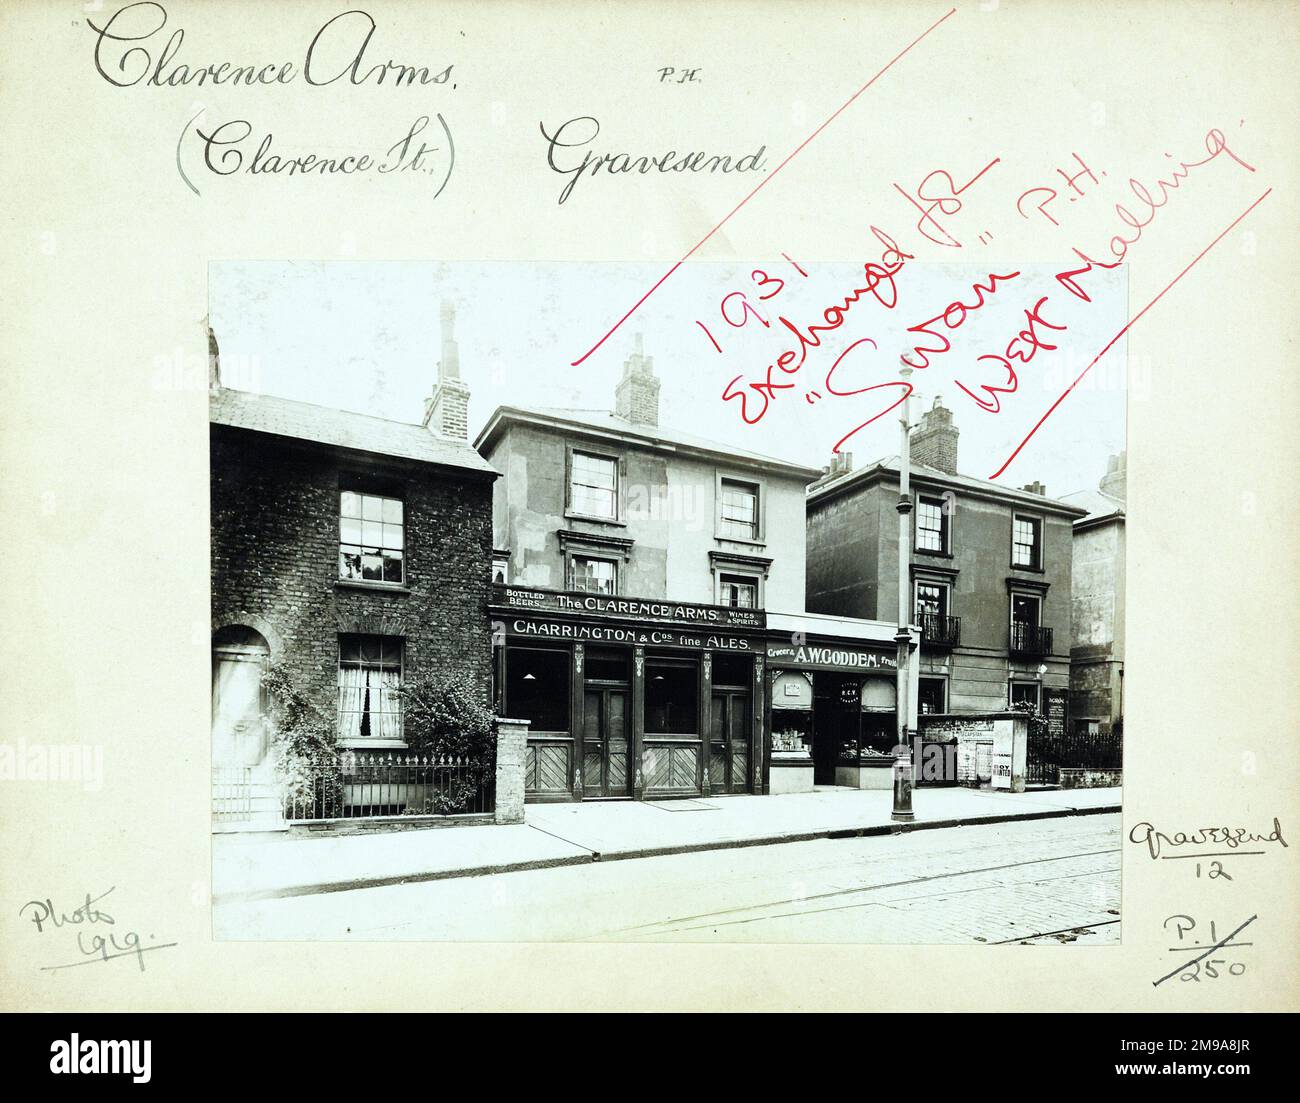 Clarence Arms.
P.H.
(Clarence St.,)
Gravesend.
1931
Exchanged for
"Swan" P.H.
West Malling.
BOTTLED BEERS
The CLARENCE ARMS.
WINES & SPIRITS
CHARRINGTON & Cos. fine ALES.
Grocer & A.W. GODDEN. Fruit
BOY
WANTED
Gravesend
12
Photo
1919.
P.1
250
alamy
Image ID: 2M9A8JR
www.alamy.com